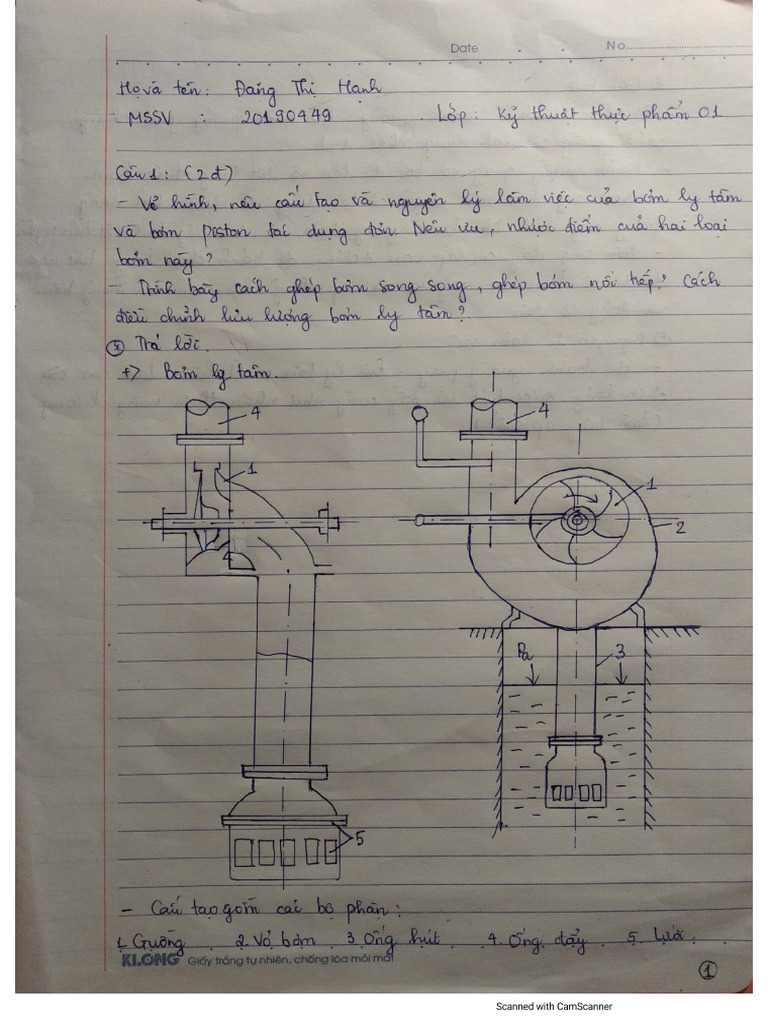 Date No
Họ và tên: Đặng Thị Hạnh
MSSV : 20190449 Lớp: Kỹ thuật thực phẩm 01
Câu 1: (2đ)
- Vẽ hình, nêu cấu tạo và nguyên lý làm việc của bơm ly tâm
và bơm piston tác dụng đơn. Nêu ưu, nhược điểm của hai loại
bơm này?
- Trình bày cách ghép bơm song song, ghép bơm nối tiếp? Cách
điều chỉnh lưu lượng bơm ly tâm?
Trả lời.
+) Bơm ly tâm.
4 4
1 1
2
4
Pa 3
5
- Cấu tạo gồm các bộ phận:
1. Guồng 2. Vỏ bơm 3. Ống hút 4. Ống đẩy 5. Lưới
KLONG Giấy trắng tự nhiên, chống lóa mỏi mắt
1
Scanned with CamScanner